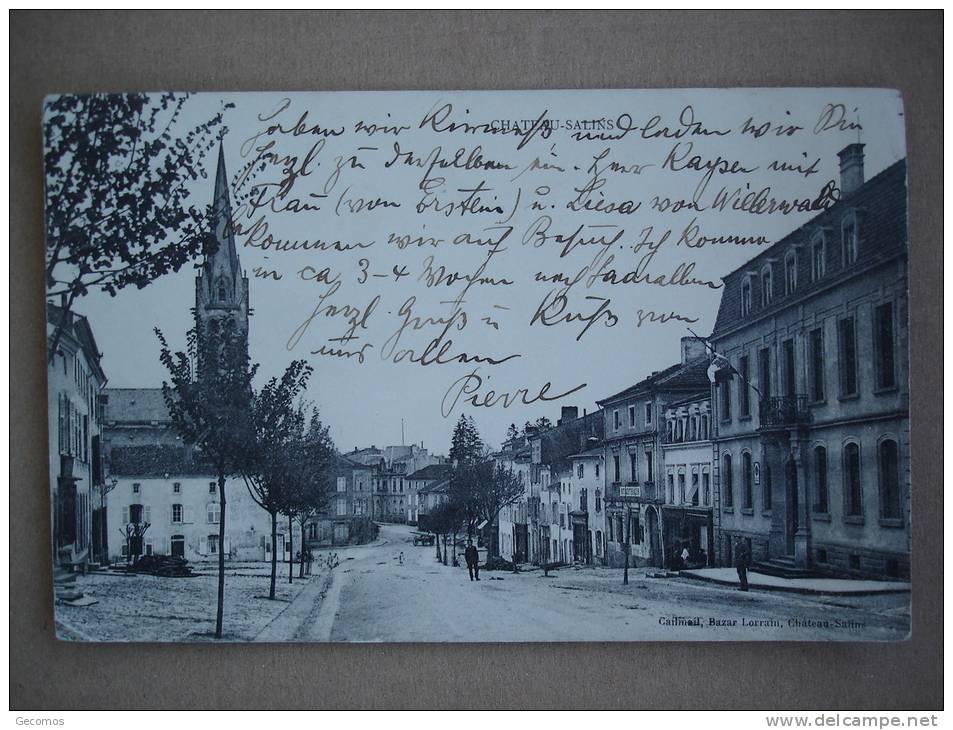 CHATEAU-SALINS
haben wir Kirmeß und laden wir Sin
herzl. zu derselben ein. Herr Kayser mit
Frau (von Erstein) u. Liesa von Willerwald
bekommen wir auf Besuch. Ich komme
in ca 3-4 Wochen nach Saaralben
Herzl. Gruß u Kuß von
uns allen
Pierre
Cailmail, Bazar Lorrain, Château-Salins
Gecomos
www.delcampe.net